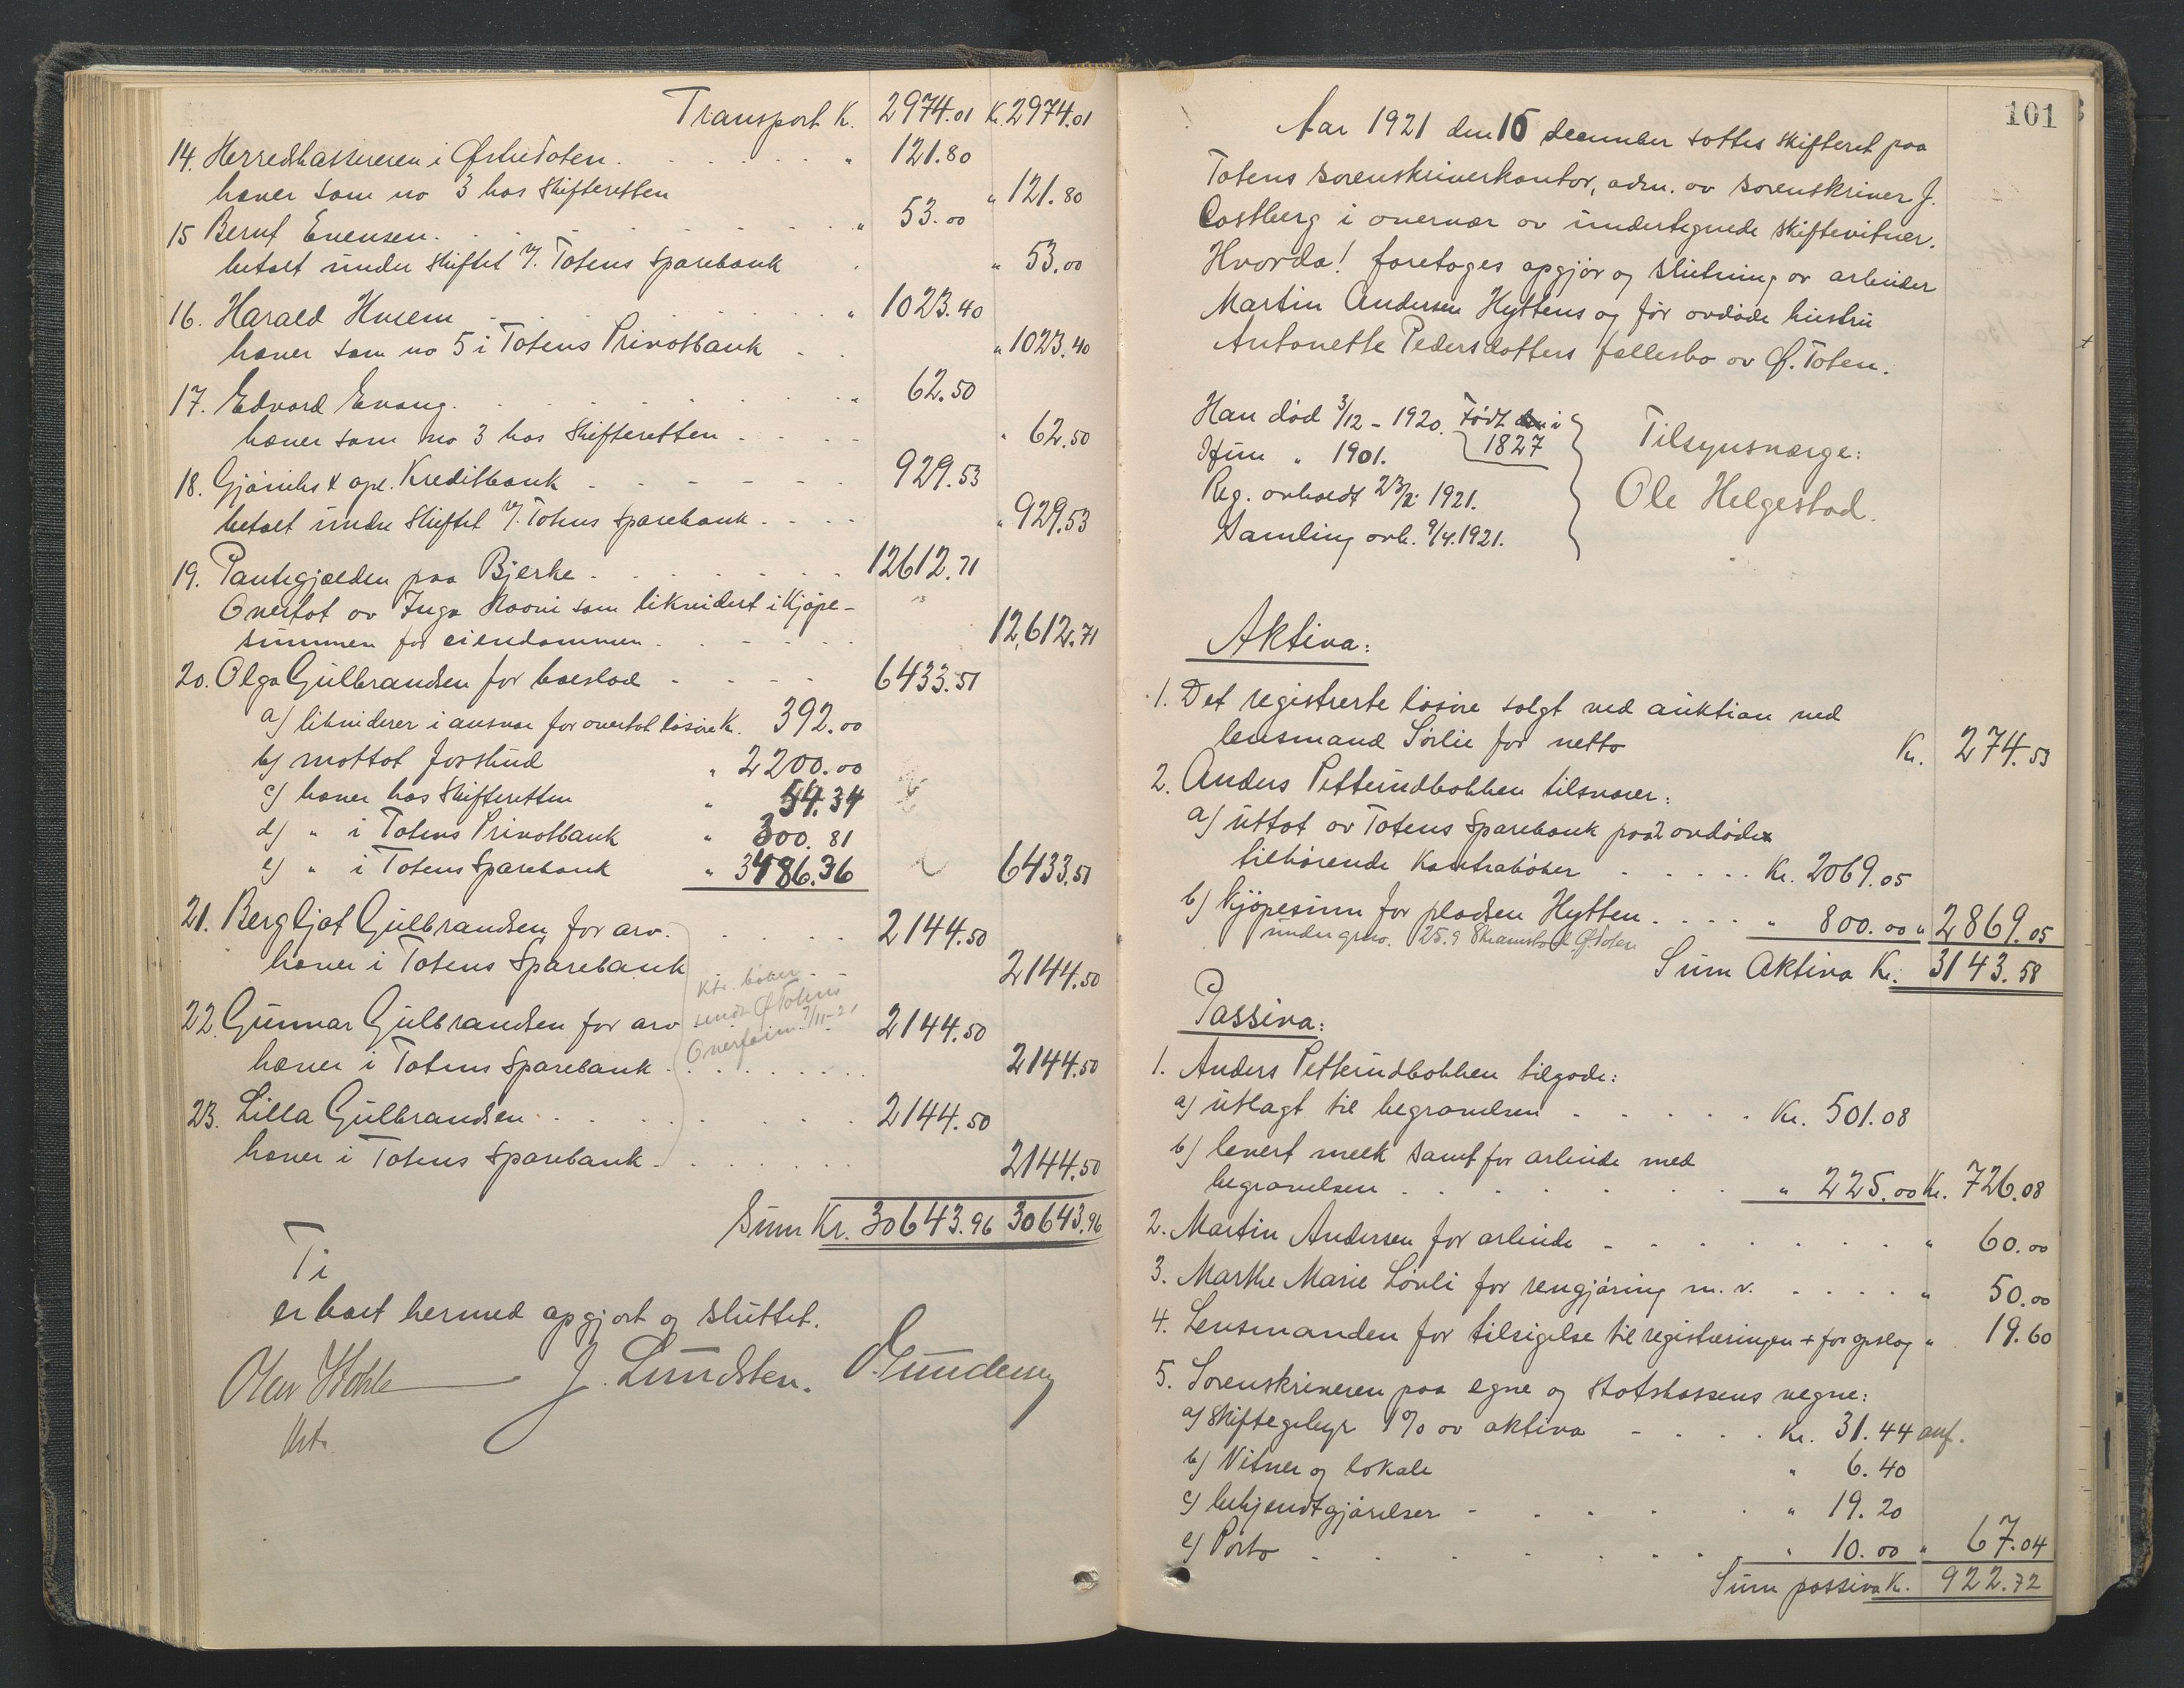 Transport K. 2974.01 Kr. 2974.01
14. Herredskassereren i Østre Toten. " 121.80
hæver som no 3 hos Skifteretten " 121.80
15 Bernt Evensen. " 53.00
betalt under Skiftet v/. Totens Sparebank " 53.00
16. Harald " 1023.40
hæver som no 5 i Totens Privatbank " 1023.40
17. Edvard Evang. " 62.50
hæver som no 3 hos Skifteretten " 62.50
18. Gjøviks & opl. Kreditbank 929.53
betalt under Skiftet v/. Totens Sparebank " 929.53
19. Pantegjælden paa Bjerke 12612.71
Overtat av Inga som likvidert i Kjøpe-
summen for eiendommen 12,612.71
20. Olga Gulbrandsen for boeslod 6433.51
a) likviderer i ansvar for overtat løsøre Kr. 392.00
b) mottat forskud " 2200.00
c) hæver hos Skifteretten " 54.34
d) " i Totens Privatbank " 300.81
e) " i Totens Sparebank " 3486.36 6433.51
21. Bergljot Gulbrandsen for arv. 2144.50
hæver i Totens Sparebank 2144.50
Ktr. bøker
sendt Ø Totens
Overform. 7/11-21
22. Gunnar Gulbrandsen for arv 2144.50
hæver i Totens Sparebank 2144.50
23. Lilla Gulbrandsen 2144.50
hæver i Totens Sparebank 2144.50
Sum Kr. 30643.96 30643.96
Ti
er boet hermed opgjort og sluttet.
J. Lundsten.
101
Aar 1921 den 16 december sattes skifteret paa
Totens sorenskriverkontor, adm. av sorenskriver J.
Castberg i overvær av undertegnede skiftevitner.
Hvorda! foretages opgjør og slutning av arbeider
Martin Andersen Hyttens og før avdøde hustru
Antonette Pedersdatters fællesbo av Ø. Toten.
Han død 3/12 - 1920. Født i
Hun " 1901. 1827
Reg. avholdt 23/2 1921.
Samling avh. 9/4. 1921.
Tilsynsværge:
Ole Helgestad.
Aktiva:
1. Det registrerte løsøre solgt ved auktion ved
lensmand Sørlie for netto Kr. 274.53
2. Anders Petterudbakken tilsvarer:
a) uttat av Totens Sparebank paa 2 avdøde
tilhørende Kontrabøker Kr. 2069.05
b) Kjøpesum for pladsen Hytten " 800.00 " 2869.05
under grno. 25.9 Skramstad Ø. Toten
Sum Aktiva Kr. 3143.58
Passiva:
1. Anders Petterudbakken tilgode:
a) utlagt til begravelsen Kr. 501.08
b) levert melk samt for arbeide med
begravelsen " 225.00 Kr. 726.08
2. Martin Andersen for arbeide " 60.00
3. Marthe Marie Løvli for rengjøring m. v. " 50.00
4. Lensmanden for tilsigelse til registreringen + forgjeslag " 19.60
5. Sorenskriveren paa egne og statskassens vegne:
a) Skiftegebyr 1% av aktiva Kr. 31.44 anf.
b) Vitner og lokale " 6.40
c) bekjendtgjørelser " 19.20
e) Porto " 10.00 " 67.04
Sum passiva K. 922.72